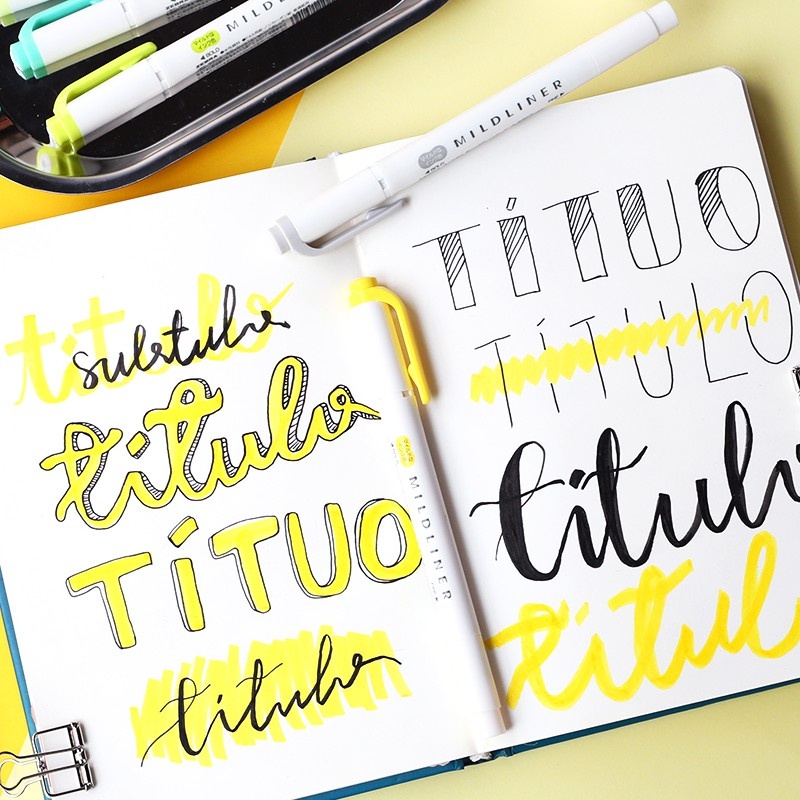 MILDLINER
MILDLINER
MILDLINER
titulo
titulo
TÍTUO
titulo
TÍTUO
TÍTULO
titulo
titul